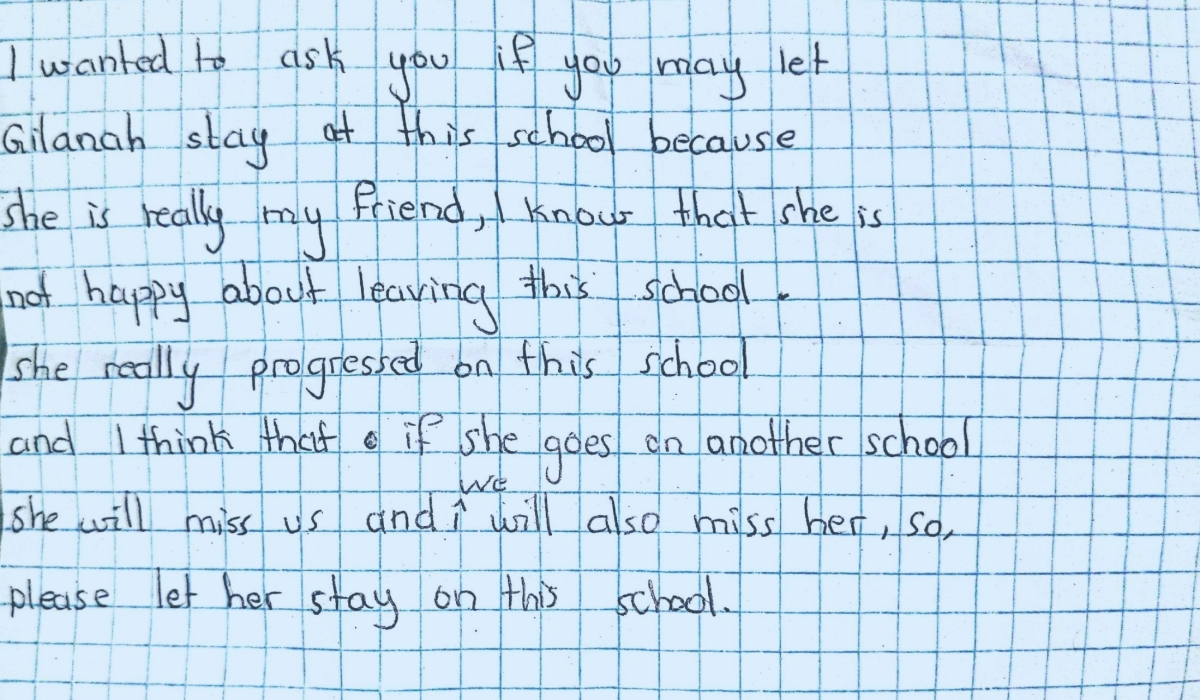 I wanted to ask you if you may let
Gilanah stay at this school because
she is really my friend, I know that she is
not happy about leaving this school.
she really progressed on this school
and I think that if she goes on another school
she will miss us and we will also miss her, so,
please let her stay on this school.